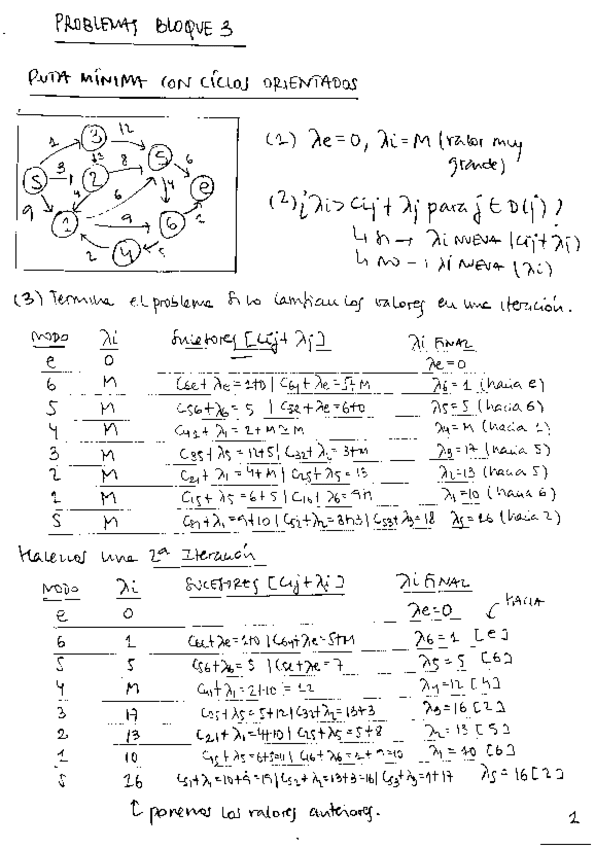 PROBLEMAS BLOQUE 3
RUTA MÍNIMA CON CICLOS ORIENTADOS
(1) λe=0, λi=M (valor muy
grande)
(2) ¿λi > Cij + λj para j ∈ D(j)?
↳ SI → λi NUEVA (Cij+λj)
↳ NO → λi NUEVA (λi)
1 3 12
S 3 2 13 8 5 6 e
9 4 6 4 1
1 9 6
2 4 5
(3) Termina el problema si no cambian los valores en una iteración.
NODO λi Sucesores [Cij+λj] λi FINAL
e 0 λe=0
6 M C6e+λe=1+0 | C64+λe=5+M λ6=1 (hacia e)
5 M C56+λ6=5 | C5e+λe=6+0 λ5=5 (hacia 6)
4 M C41+λ1=2+M≃M λ4=M (hacia 1)
3 M C35+λ5=12+5 | C32+λ2=3+M λ3=17 (hacia 5)
2 M C21+λ1=4+M | C25+λ5=13 λ2=13 (hacia 5)
1 M C15+λ5=6+5 | C16+λ6=9+1 λ1=10 (hacia 6)
S M CS1+λ1=9+10 | CS2+λ2=3+13 | CS3+λ3=18 λS=16 (hacia 2)
Hacemos una 2ª Iteración
NODO λi SUCESORES [Cij+λi] λi FINAL
e 0 λe=0 HACIA
6 1 C6e+λe=1+0 | C64+λe=5+M λ6=1 [e]
5 5 C56+λ6=5 | C5e+λe=7 λ5=5 [6]
4 M C41+λ1=2+10=12 λ4=12 [4]
3 17 C35+λ5=5+12 | C32+λ2=13+3 λ3=16 [2]
2 13 C21+λ1=4+10 | C25+λ5=5+8 λ2=13 [5]
1 10 C15+λ5=6+5=11 | C16+λ6=1+9=10 λ1=10 [6]
S 16 CS1+λ1=10+9=19 | CS2+λ2=13+3=16 | CS3+λ3=1+17 λS=16 [2]
↑ ponemos los valores anteriores.
1